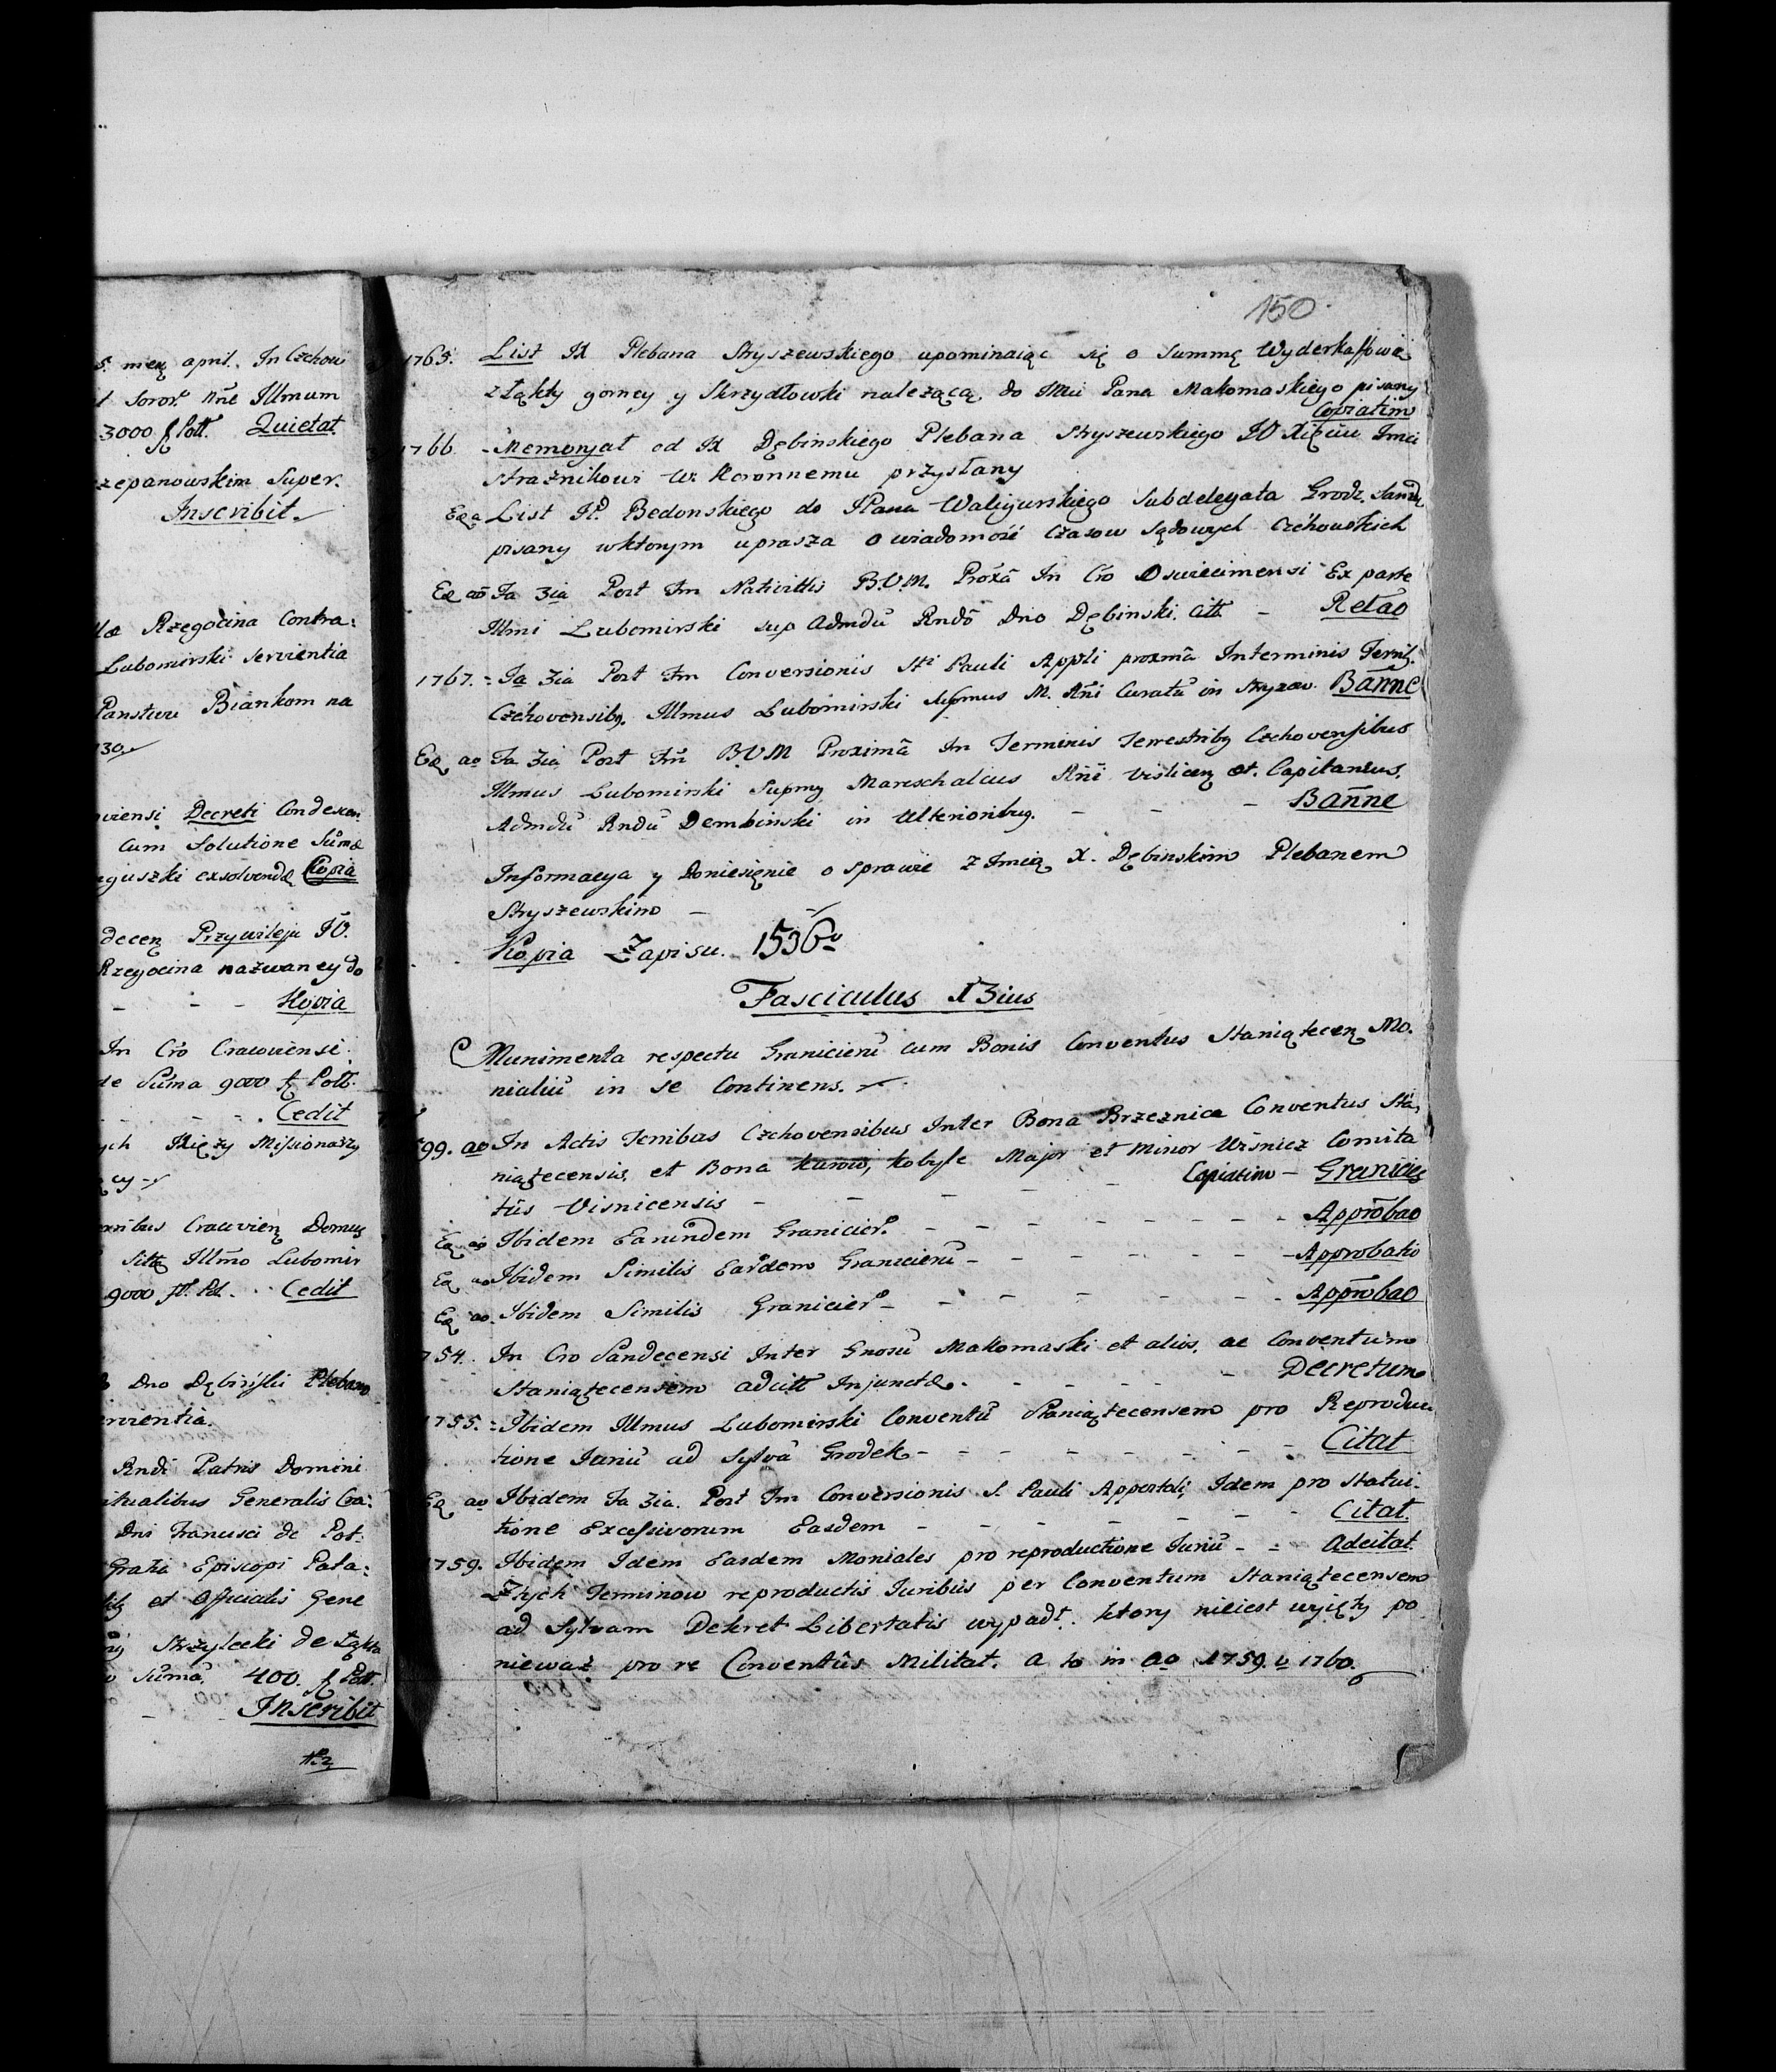 5. menς april. In Czchow
Soror. nñe Illmum
3000 fl Poll. Quietat.
zepanowskim Super.
Inscribit.
Rzegocina Contra:
Lubomirski servientia
Panstwu Biankom na
30
viensi Decreti Condescen
Cum Solutione Sum̃æ
guszki exsolvendæ Kopia
decenς Przywileju JO.
Rzegocina nazwaney do
- - - Kopia
In Crõ Cracoviensi.
de Sum̃a 9000 fl Poll.
Cedit
ych Xięży Missionarzy
cy
Cracvienς Domus
Sitς Illm̃o Lubomir
9000 fl. Pol. Cedit
Dno Dębiński Plebano
rvientia.
Rndi Patris Domini
itualibus Generalis Cra:
Dni Francisci de Pot.
Gratia Episcopi Pata:
et Officialis Gene
Strzylecki de Łąkta
Sum̃a 400. fl Poll.
Inscribit
150.
1765. List IX Plebana Stryszewskiego upominaiąc się o Summę Wyderkaffową
z Łąkty gorney y Skrzydłowki należącą do JMci Pana Makomaskiego pisany
Copiatim
1766 Memoryał od IX Dębinskiego Plebana Stryszewskiego JO Xięciu Jmci
Strażnikowi W. Koronnemu przysłany
Eς a List IP. Bedonskiego do JPana Waligurskiego Subdelegata Grodz. Sandς
pisany wktorym uprasza o wiadomość Czasow Sądowych Czchowskich
Eς aõ Fa 3ia Post Fm Nativittis B.V.M. Proxã In Crõ Oswiecimensi Ex parte
Illmi Lubomirski sup Admdũ Rndõ Dno Dębinski. Citt. - Relao
1767. - Fa 3ia Post Fm Conversionis Sti Pauli Appli proxmã Interminis Terrils.
Czchovensibς. Illmus Lubomirski Supmus M. Rñi Curatũ in Stryszew. Bañne
Eς ao Fa 3ia Post Fm̃ BVM Proximã In Terminis Terrestribς Czchovensibus
Illmus Lubomirski Supmς Mareschalcus Rñi vislicenς et. Capitaneus.
Admdũ Rndũ Dembinski in Ulterioribus. - - - Bañne
Informacya y Doniesięnie o sprawie z Jmcią X. Dębinskim Plebanem
Stryszewskim -
Kopia Zapisu. 1536o
Fasciculus 13ius
Munimenta respectu Granicierũ cum Bonis Conventus Staniątecenς Mo.
nialiũ in se Continens.
99. ao In Actis Terribus Czchovensibus Inter Bona Brzeznica Conventus Sta,
niątecensis, et Bona Kurow, Kobyle Major et Minor Wisnicz Comita
tûs Visnicensis - - - - - Copiatim - Granicies
Eς ao Ibidem Earundem Granicier. - - - - - - - Approbao
Eς ao Ibidem Similis Eardem Granicierũ - - - - - - Approbatio
Eς ao. Ibidem Similis Granicier - - - - - - Approbao
754. In Cro Sandecensi Inter Gnosũ Makomaski et alios, ac Conventum
Staniątecensem adcitt Injunctæ. - - - - - Decretum
1755. - Ibidem Illmus Lubomirski Conventũ Staniątecensem pro Reproduc
tione Juriũ ad Sylvã Grodek - - - - - - - Citat
Eς ao Ibidem Fa 3ia. Post Fm Conversionis S. Pauli Appostoli, Idem pro Statui.
tione Excessivorum Easdem - - - - - - - Citat.
1759. Ibidem Idem Easdem Moniales pro reproductione Juriũ - - Adcitat
Ztych Terminow reproductis Juribus per Conventum Staniątecensem
ad Sylvam Dekret Libertatis wypadł. ktory nieiest wyięty po
nieważ pro re Conventûs Militat. a to in ao 1759. v 1760.